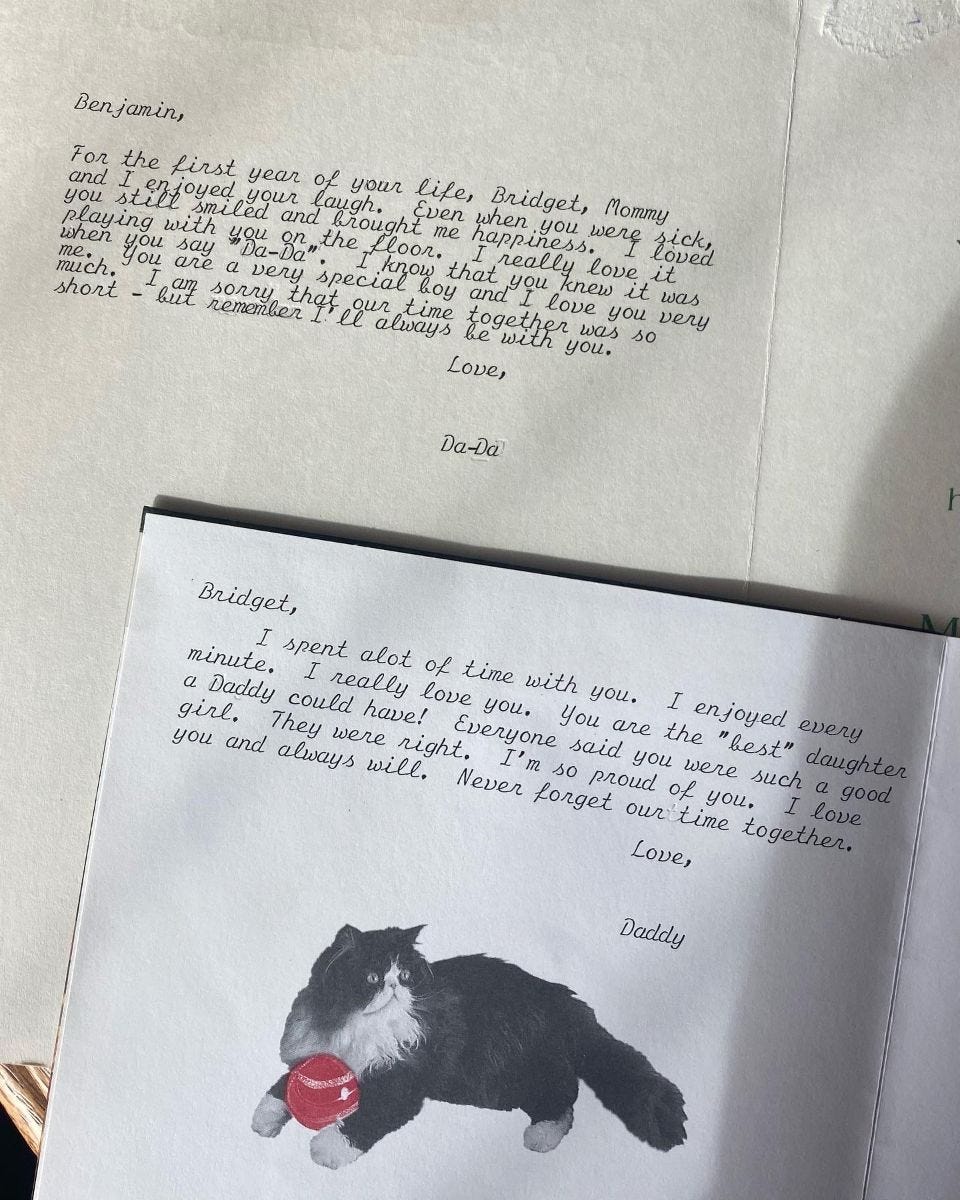 Benjamin,
For the first year of your life, Bridget, Mommy
and I enjoyed your laugh. Even when you were sick,
you still smiled and brought me happiness. I loved
playing with you on the floor. I really love it
when you say "Da-Da". I know that you knew it was
me. You are a very special boy and I love you very
much. I am sorry that our time together was so
short - but remember I'll always be with you.
Love,
Da-Da
Bridget,
I spent alot of time with you. I enjoyed every
minute. I really love you. You are the "best" daughter
a Daddy could have! Everyone said you were such a good
girl. They were right. I'm so proud of you. I love
you and always will. Never forget our time together.
Love,
Daddy